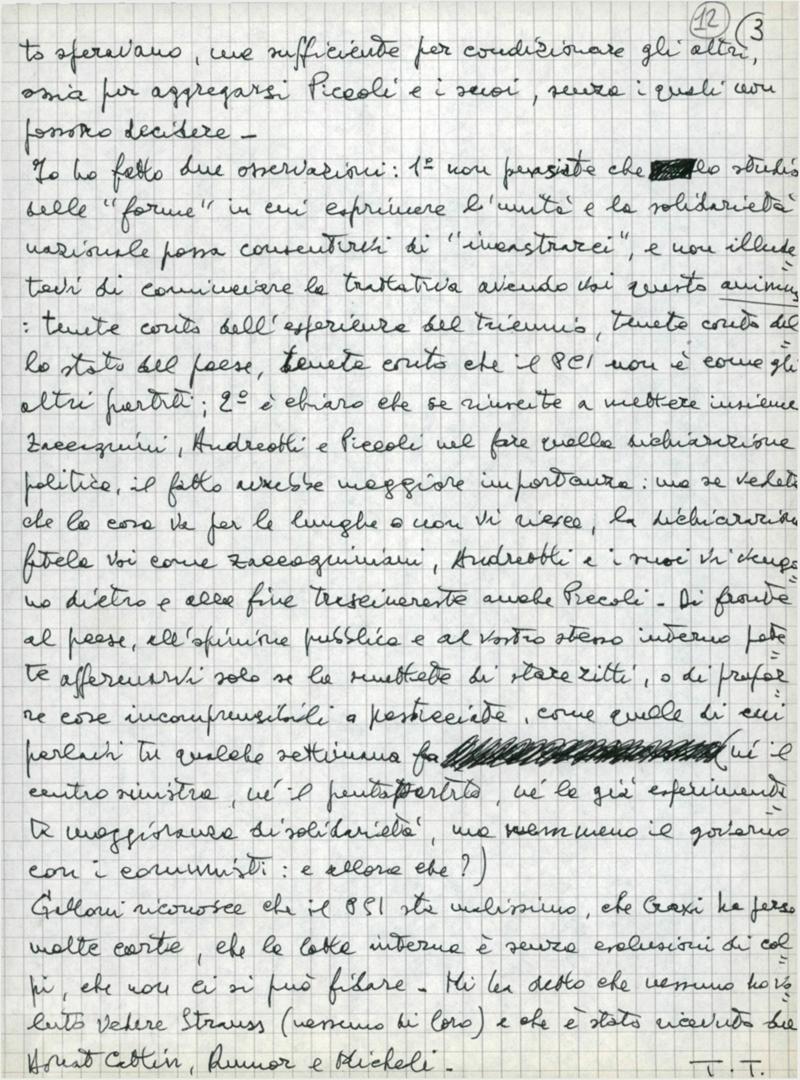 12 3
to speravano, ma sufficiente per condizionare gli altri,
ossia per aggregarsi Piccoli e i suoi, senza i quali non
possono decidere –
Io ho fatto due osservazioni: 1º non pensiate che lo studio
delle "forme" in cui esprimere l'unità e la solidarietà
nazionale possa consentirvi di "incastrarci", e non illude
tevi di cominciare la trattativa avendo voi questo animus
: tenete conto dell'esperienza del triennio, tenete conto del
lo stato del paese, tenete conto che il PCI non è come gli
altri partiti; 2º è chiaro che se riuscite a mettere insieme
Zaccagnini, Andreotti e Piccoli nel fare quella dichiarazione
politica, il fatto avrebbe maggiore importanza: ma se vedete
che la cosa va per le lunghe o non vi riesce, la dichiarazione
fatela voi come zaccagniniani, Andreotti e i suoi vi vengo
no dietro e alla fine trascinereste anche Piccoli – Di fronte
al paese, all'opinione pubblica e al vostro stesso interno pote
te affermarvi solo se la smettete di stare zitti, o di propor
re cose incomprensibili a pasticciate, come quelle di cui
parlavi tu qualche settimana fa (né il
centro sinistra, né il pentapartito, né la già esperimenta
ta maggioranza di solidarietà, ma nemmeno il governo
con i comunisti: e allora che?)
Galloni riconosce che il PSI sta malissimo, che Craxi ha perso
molte carte, che la lotta interna è senza esclusioni di col
pi, che non ci si può fidare – Mi ha detto che nessuno ha vo
luto vedere Strauss (nessuno di loro) e che è stato ricevuto da
Donat Cattin, Rumor e Micheli –
T. T.